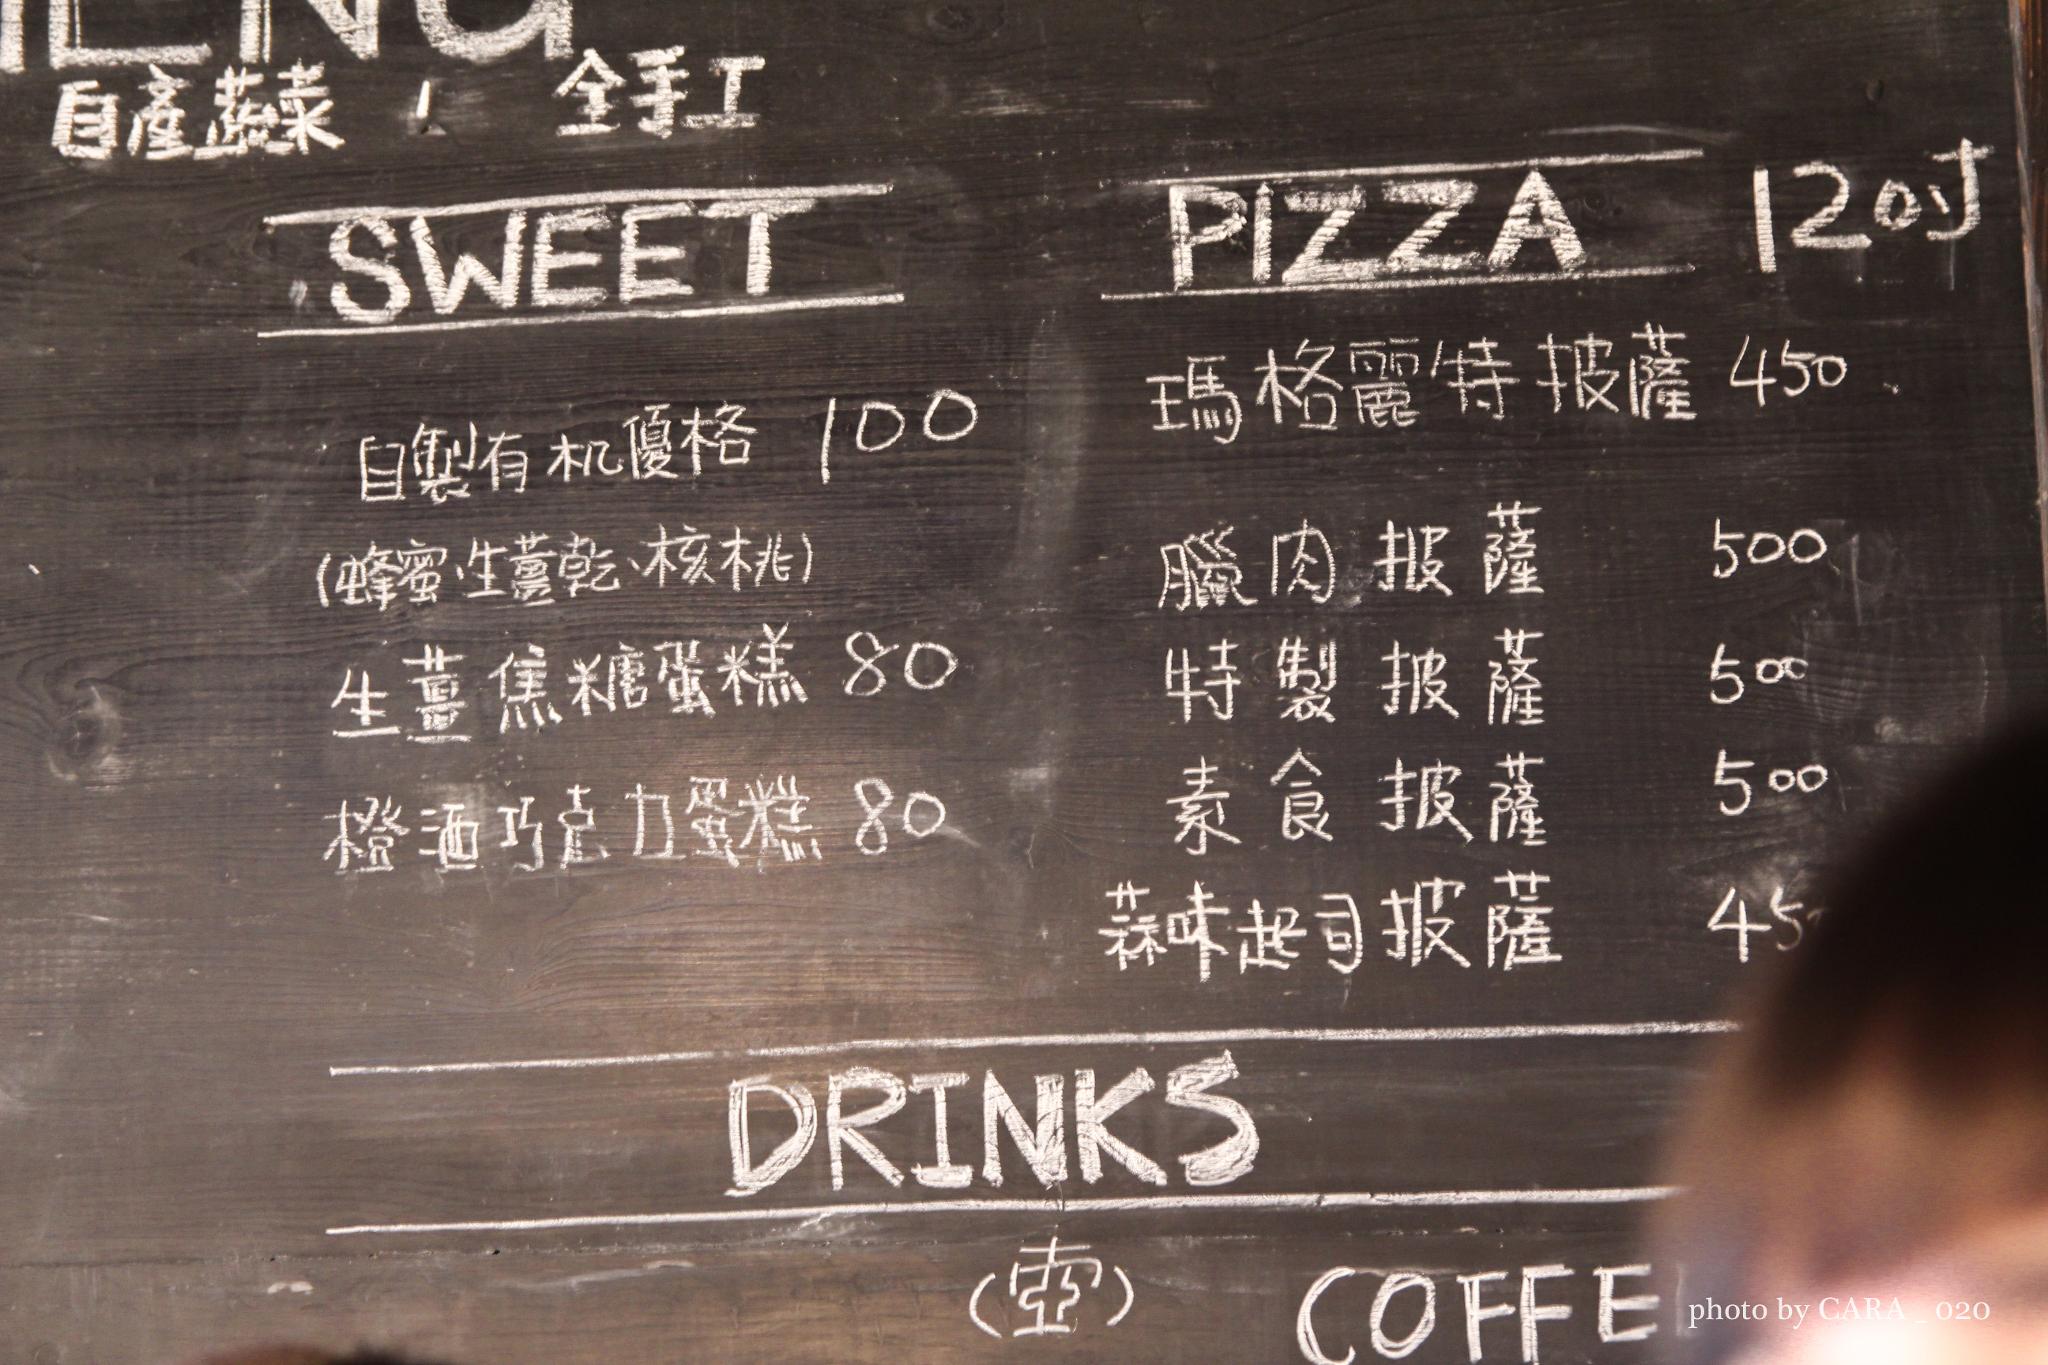 自產蔬菜、全手工
SWEET
自製有机優格 100
(蜂蜜、生薑乾、核桃)
生薑焦糖蛋糕 80
橙酒巧克力蛋糕 80
PIZZA 12吋
瑪格麗特披薩 450
臘肉披薩 500
特製披薩 500
素食披薩 500
蒜味起司披薩 45
DRINKS
(壺) COFFE
photo by CARA _ 020